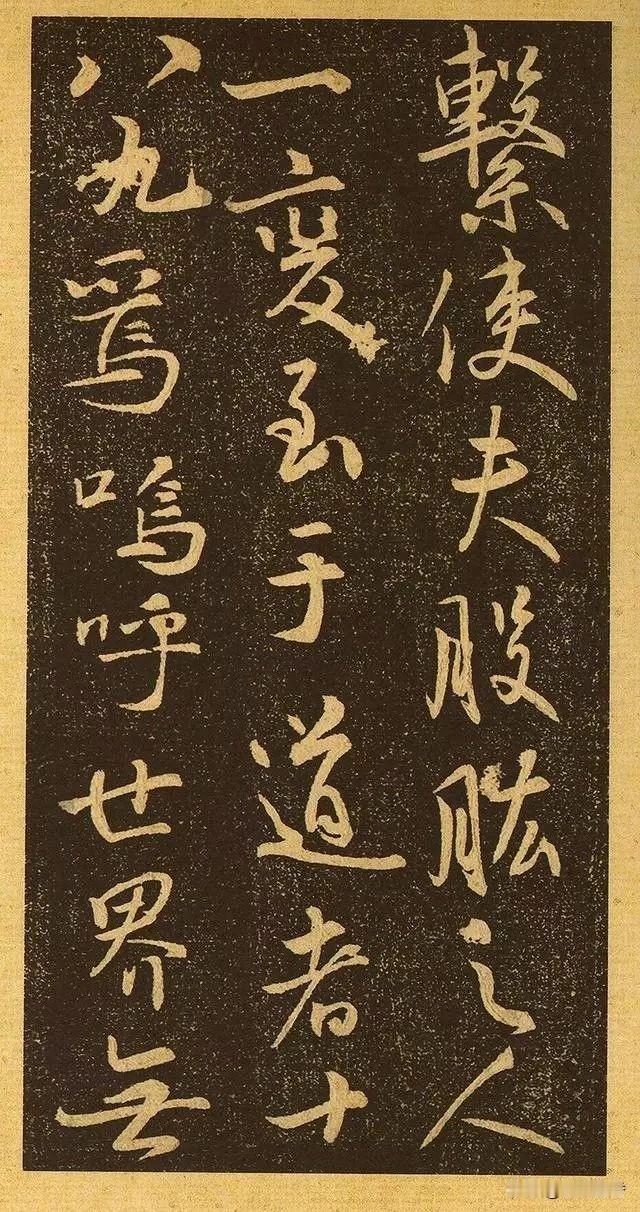 繫使夫股肱之人
一變至于道者十
八九焉嗚呼世界無